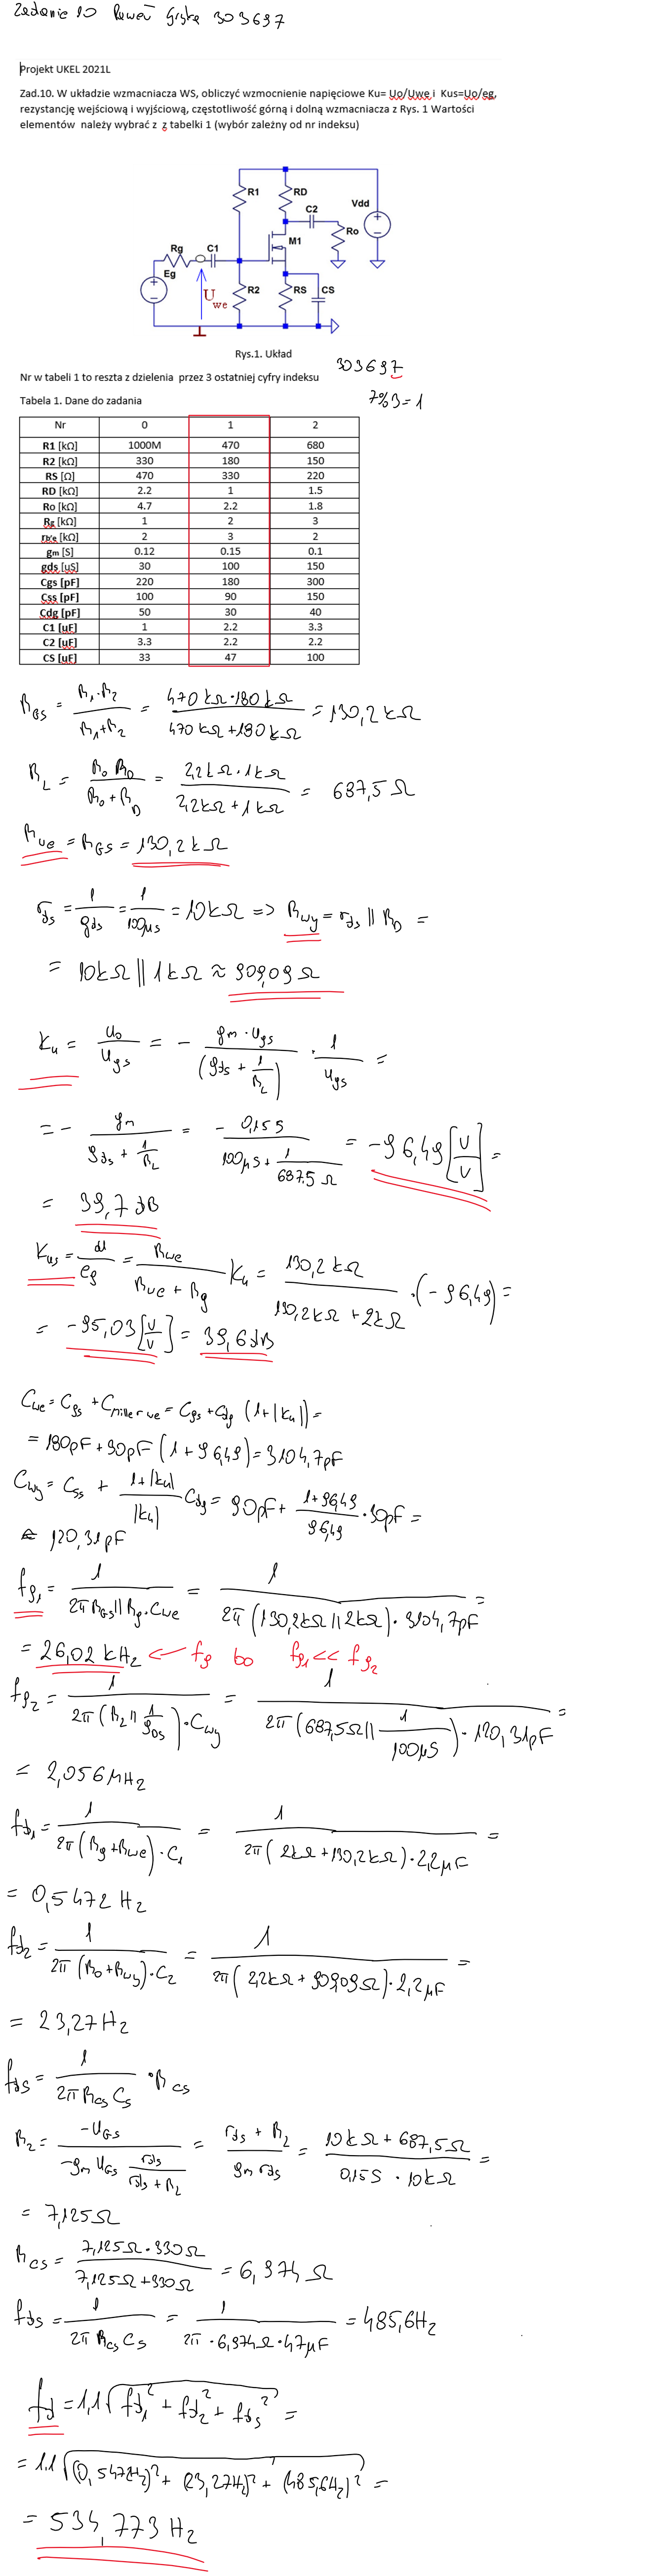 Zadanie 10 Paweł Gryka 303697
Projekt UKEL 2021L
Zad.10. W układzie wzmacniacza WS, obliczyć wzmocnienie napięciowe Ku= Uo/Uwe i Kus=Uo/eg,
rezystancję wejściową i wyjściową, częstotliwość górną i dolną wzmacniacza z Rys. 1 Wartości
elementów należy wybrać z z tabelki 1 (wybór zależny od nr indeksu)
R1 RD Vdd
C2
Ro
M1
Rg C1
Eg
U we
R2 RS CS
Rys.1. Układ
303697
Nr w tabeli 1 to reszta z dzielenia przez 3 ostatniej cyfry indeksu
7%3=1
Tabela 1. Dane do zadania
Nr 0 1 2
R1 [kΩ] 1000M 470 680
R2 [kΩ] 330 180 150
RS [Ω] 470 330 220
RD [kΩ] 2.2 1 1.5
Ro [kΩ] 4.7 2.2 1.8
Rg [kΩ] 1 2 3
rb'e [kΩ] 2 3 2
gm [S] 0.12 0.15 0.1
gds [uS] 30 100 150
Cgs [pF] 220 180 300
Css [pF] 100 90 150
Cdg [pF] 50 30 40
C1 [uF] 1 2.2 3.3
C2 [uF] 3.3 2.2 2.2
CS [uF] 33 47 100
R_GS = R1·R2 / (R1+R2) = 470 kΩ·180 kΩ / (470 kΩ+180 kΩ) = 130,2 kΩ
R_L = R0 RD / (R0+RD) = 2,2kΩ·1kΩ / (2,2kΩ+1kΩ) = 687,5 Ω
R_we = R_GS = 130,2 kΩ
r_ds = 1/g_ds = 1/100μS = 10kΩ => R_wy = r_ds || R_D =
= 10kΩ || 1kΩ ≈ 909,09 Ω
k_u = u_o/u_gs = - g_m·u_gs / (g_ds + 1/R_L) · 1/u_gs =
= - g_m / (g_ds + 1/R_L) = - 0,15S / (100μS + 1/687,5Ω) = -96,49 [V/V] =
= 39,7 dB
k_us = u/e_g = R_we / (R_we + R_g) k_u = 130,2 kΩ / (130,2 kΩ + 2kΩ) · (-96,49) =
= -95,03 [V/V] = 39,6 dB
C_we = C_gs + C_Miller we = C_gs + C_dg (1+|k_u|) =
= 180pF + 30pF (1 + 96,49) = 3104,7pF
C_wy = C_ss + (1+|k_u|)/|k_u| C_dg = 90pF + (1+96,49)/96,49 · 30pF =
≈ 120,31pF
f_g1 = 1 / (2π R_GS||R_g·C_we) = 1 / (2π (130,2kΩ||2kΩ) · 3104,7pF) =
= 26,02 kHz ← f_g bo f_g1 << f_g2
f_g2 = 1 / (2π (R_L || 1/g_DS)·C_wy) = 1 / (2π (687,5Ω || 1/100μS) · 120,31pF) =
= 2,056 MHz
f_d1 = 1 / (2π (R_g+R_we)·C_1) = 1 / (2π (2kΩ+130,2kΩ)·2,2μF) =
= 0,5472 Hz
f_d2 = 1 / (2π (R_o+R_wy)·C_2) = 1 / (2π (2,2kΩ + 909,09Ω)·2,2μF) =
= 23,27 Hz
f_ds = 1 / (2π R_cs C_s) · R_cs
R_2 = -U_GS / (-g_m U_GS r_ds/(r_ds+R_L)) = (r_ds + R_L) / (g_m r_ds) = (10kΩ + 687,5Ω) / (0,15S · 10kΩ) =
= 7,125Ω
R_cs = 7,125Ω·330Ω / (7,125Ω+330Ω) = 6,974 Ω
f_ds = 1 / (2π R_cs C_s) = 1 / (2π · 6,974Ω·47μF) = 485,6Hz
f_d = 1,1 √(f_d1² + f_d2² + f_ds²) =
= 1,1 √((0,5472Hz)² + (23,27Hz)² + (485,6Hz)²) =
= 534,773 Hz